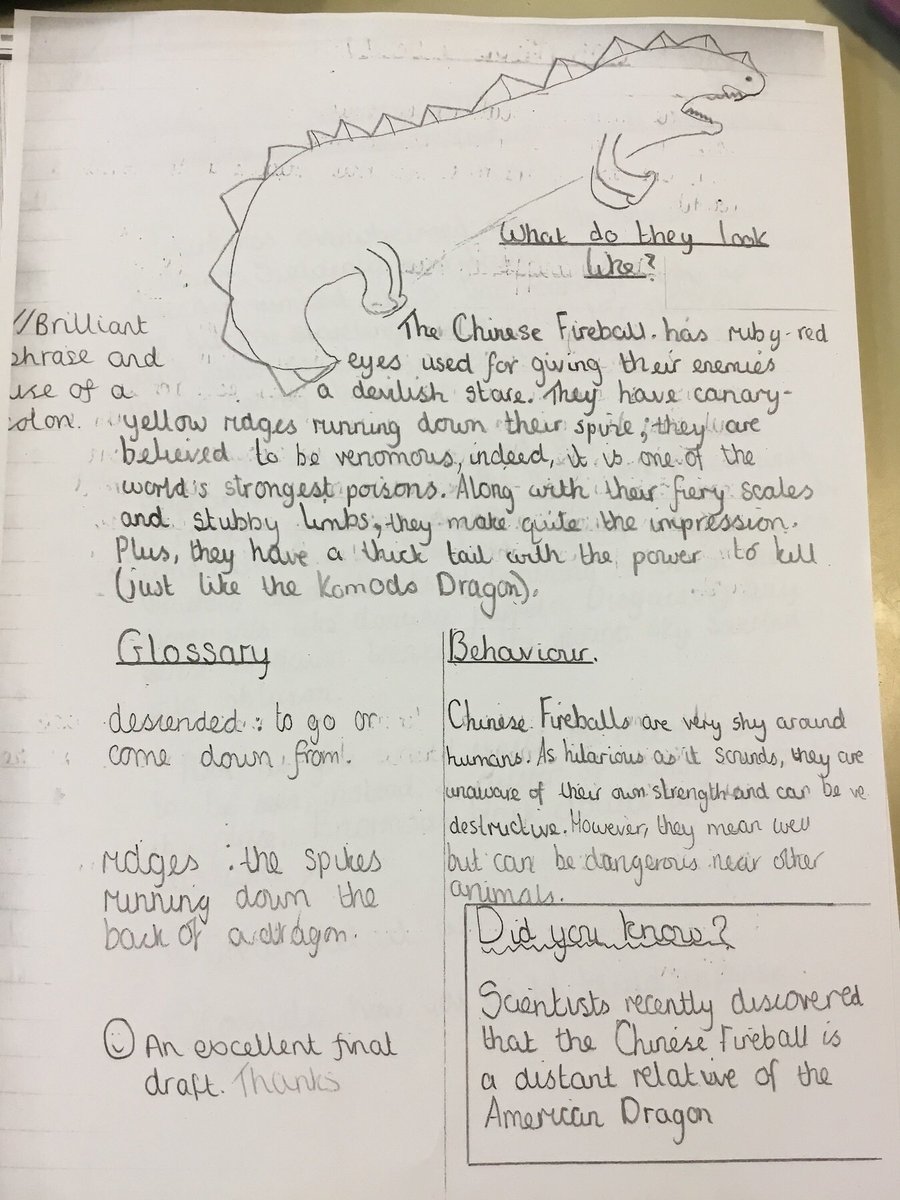 What do they look
like?
//Brilliant
phrase and
use of a
colon.
The Chinese Fireball. has ruby-red
eyes used for giving their enemies
a devilish stare. They have canary-
yellow ridges running down their spine; they are
believed to be venomous, indeed, it is one of the
world's strongest poisons. Along with their fiery scales
and stubby limbs, they make quite the impression.
Plus, they have a thick tail with the power to kill
(just like the Komodo Dragon).
Glossary
descended: to go or
come down from.
ridges: the spikes
running down the
back of a dragon.
☺ An excellent final
draft. Thanks
Behaviour.
Chinese Fireballs are very shy around
humans. As hilarious as it sounds, they are
unaware of their own strength and can be ve
destructive. However, they mean well
but can be dangerous near other
animals.
Did you know?
Scientists recently discovered
that the Chinese Fireball is
a distant relative of the
American Dragon